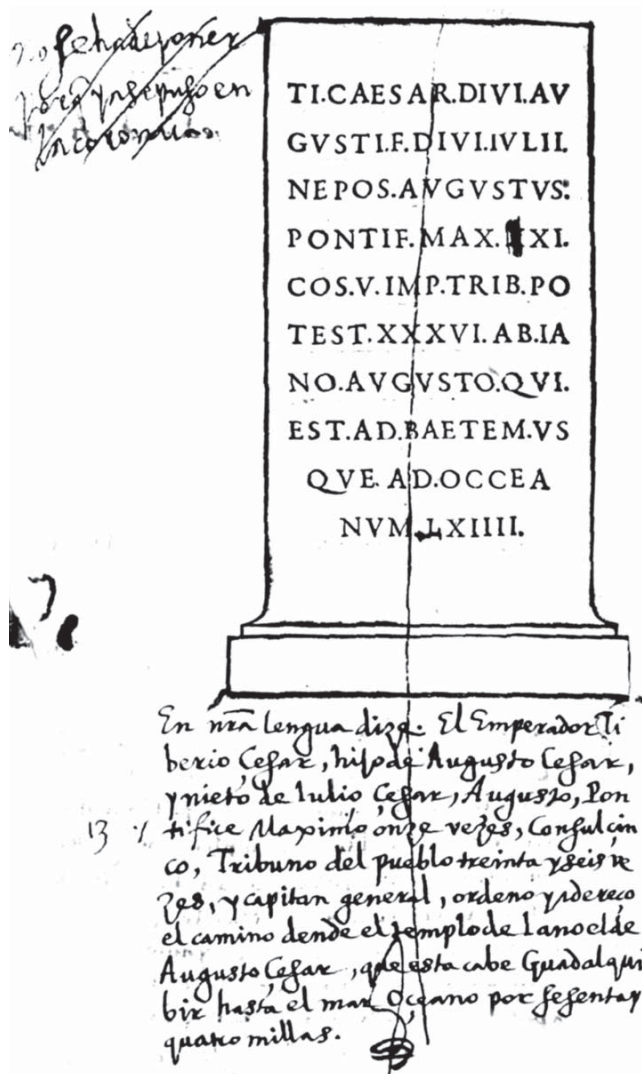 no se ha de poner
se puso en
TI.CAESAR.DIVI.AV
GVSTI.F.DIVI.IVLII.
NEPOS.AVGVSTVS.
PONTIF.MAX. XI.
COS.V.IMP.TRIB.PO
TEST.XXXVI.AB.IA
NO.AVGVSTO.QVI.
EST.AD.BAETEM.VS
QVE.AD.OCCEA
NVM.LXIIII.
En nra lengua dize. El Emperador Ti
berio Çesar, hijo de Augusto Cesar,
y nieto de Iulio Çesar, Augusto, Pon
13 tifice Maximo onze vezes, Consul cin
co, Tribuno del pueblo treinta y seis ve
zes, y capitan general, ordeno y dereço
el camino dende el templo de Iano el de
Augusto Çesar, que esta cabe Guadalqui
bir hasta el mar Oçeano por sesenta y
quatro millas.